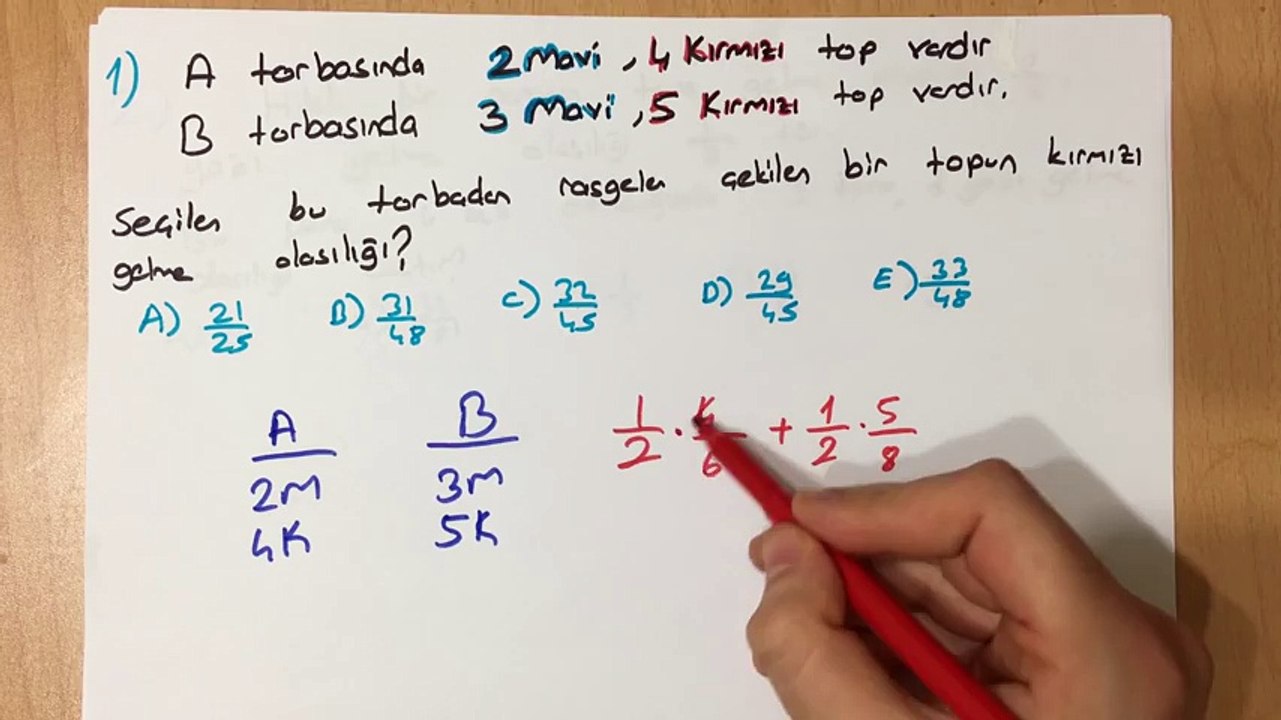 1) A torbasında 2 Mavi, 4 Kırmızı top vardır
B torbasında 3 Mavi, 5 Kırmızı top vardır.
Seçilen bu torbadan rasgele çekilen bir topun kırmızı
gelme olasılığı?
A) 21/25 B) 31/48 C) 32/45 D) 29/45 E) 33/48
A B 1/2 . 4/6 + 1/2 . 5/8
2M 3M
4K 5K